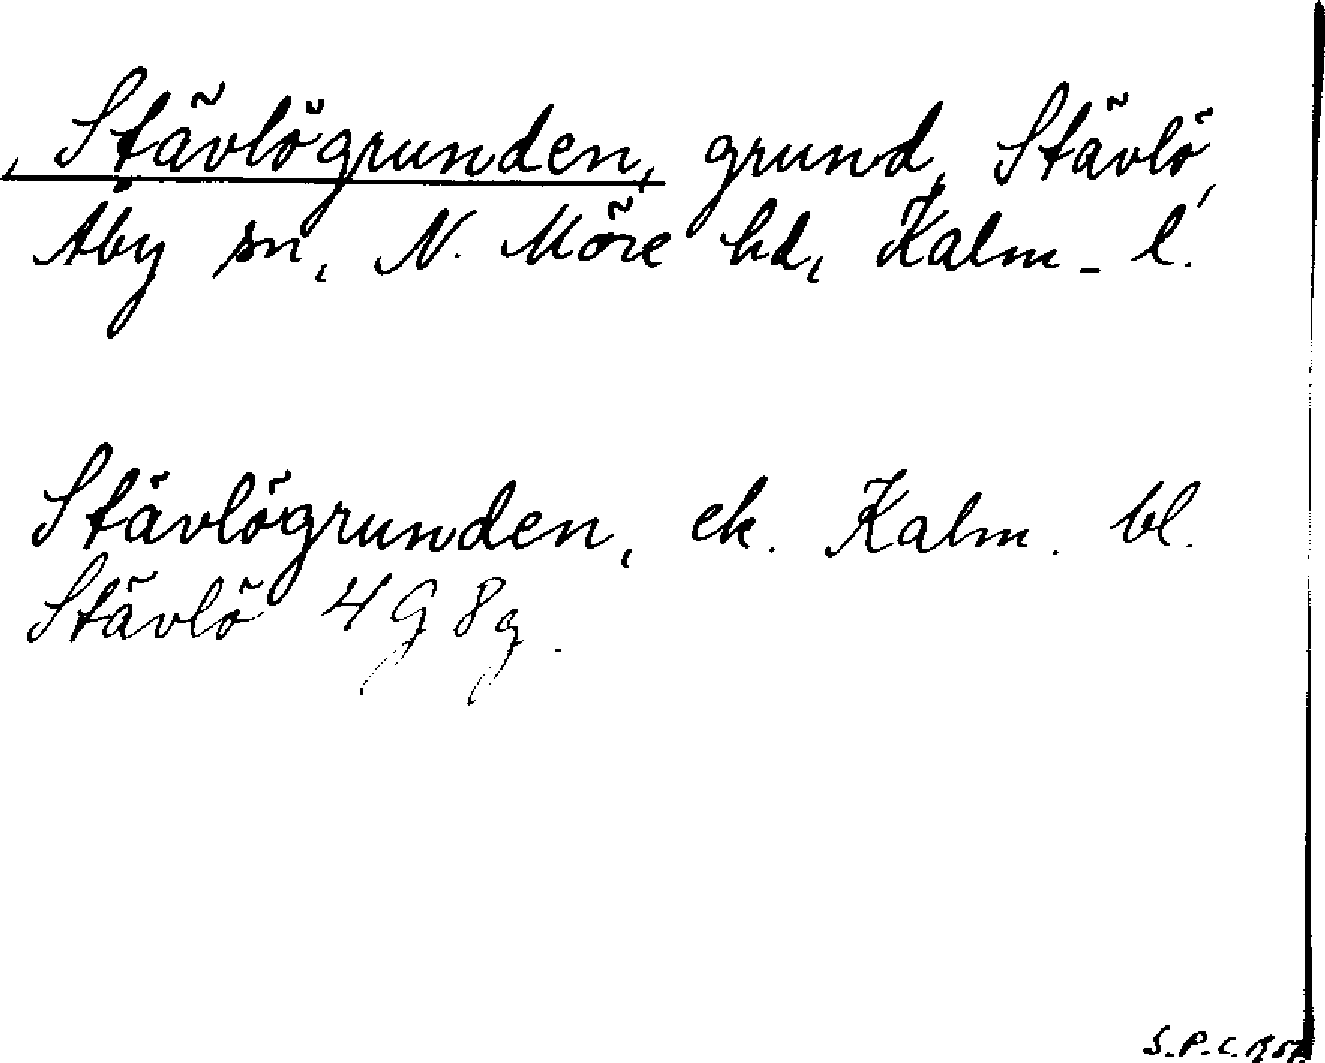 Stävlögrunden, grund, Stävlö,
Åby sn, N. Möre hd, Kalm. l.
Stävlögrunden, ek. Kalm. bl.
Stävlö 4G 8g.
S.P.C.